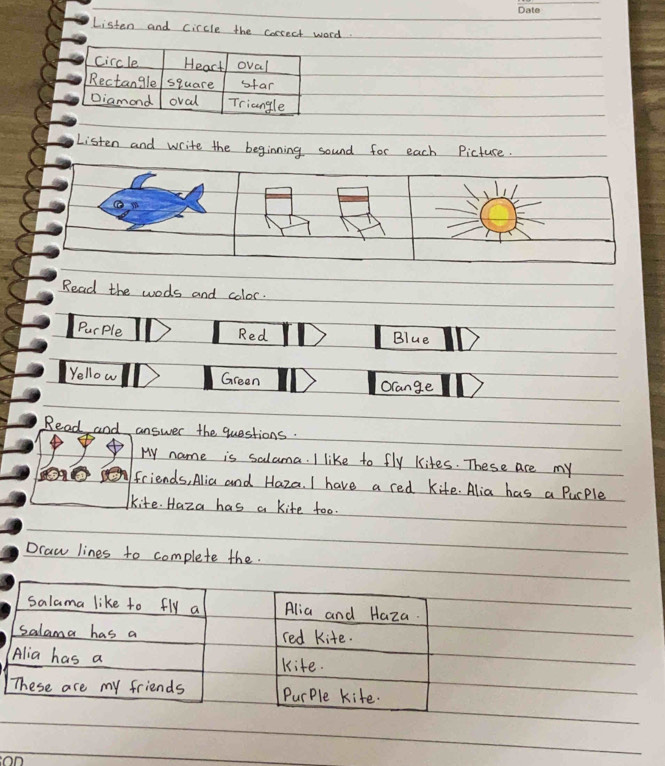 Date
Listen and circle the correct word.
Circle Heart oval
Rectangle square star
Diamond oval Triangle
Listen and write the beginning sound for each Picture.
Read the wods and color.
Purple Red Blue
Yellow Green Orange
Read and answer the questions.
My name is Salama. I like to fly kites. These are my
friends, Alia and Haza. I have a red kite. Alia has a Purple
kite. Haza has a kite too.
Draw lines to complete the.
Salama like to fly a Alia and Haza.
Salama has a red kite.
Alia has a kite.
These are my friends Purple kite.